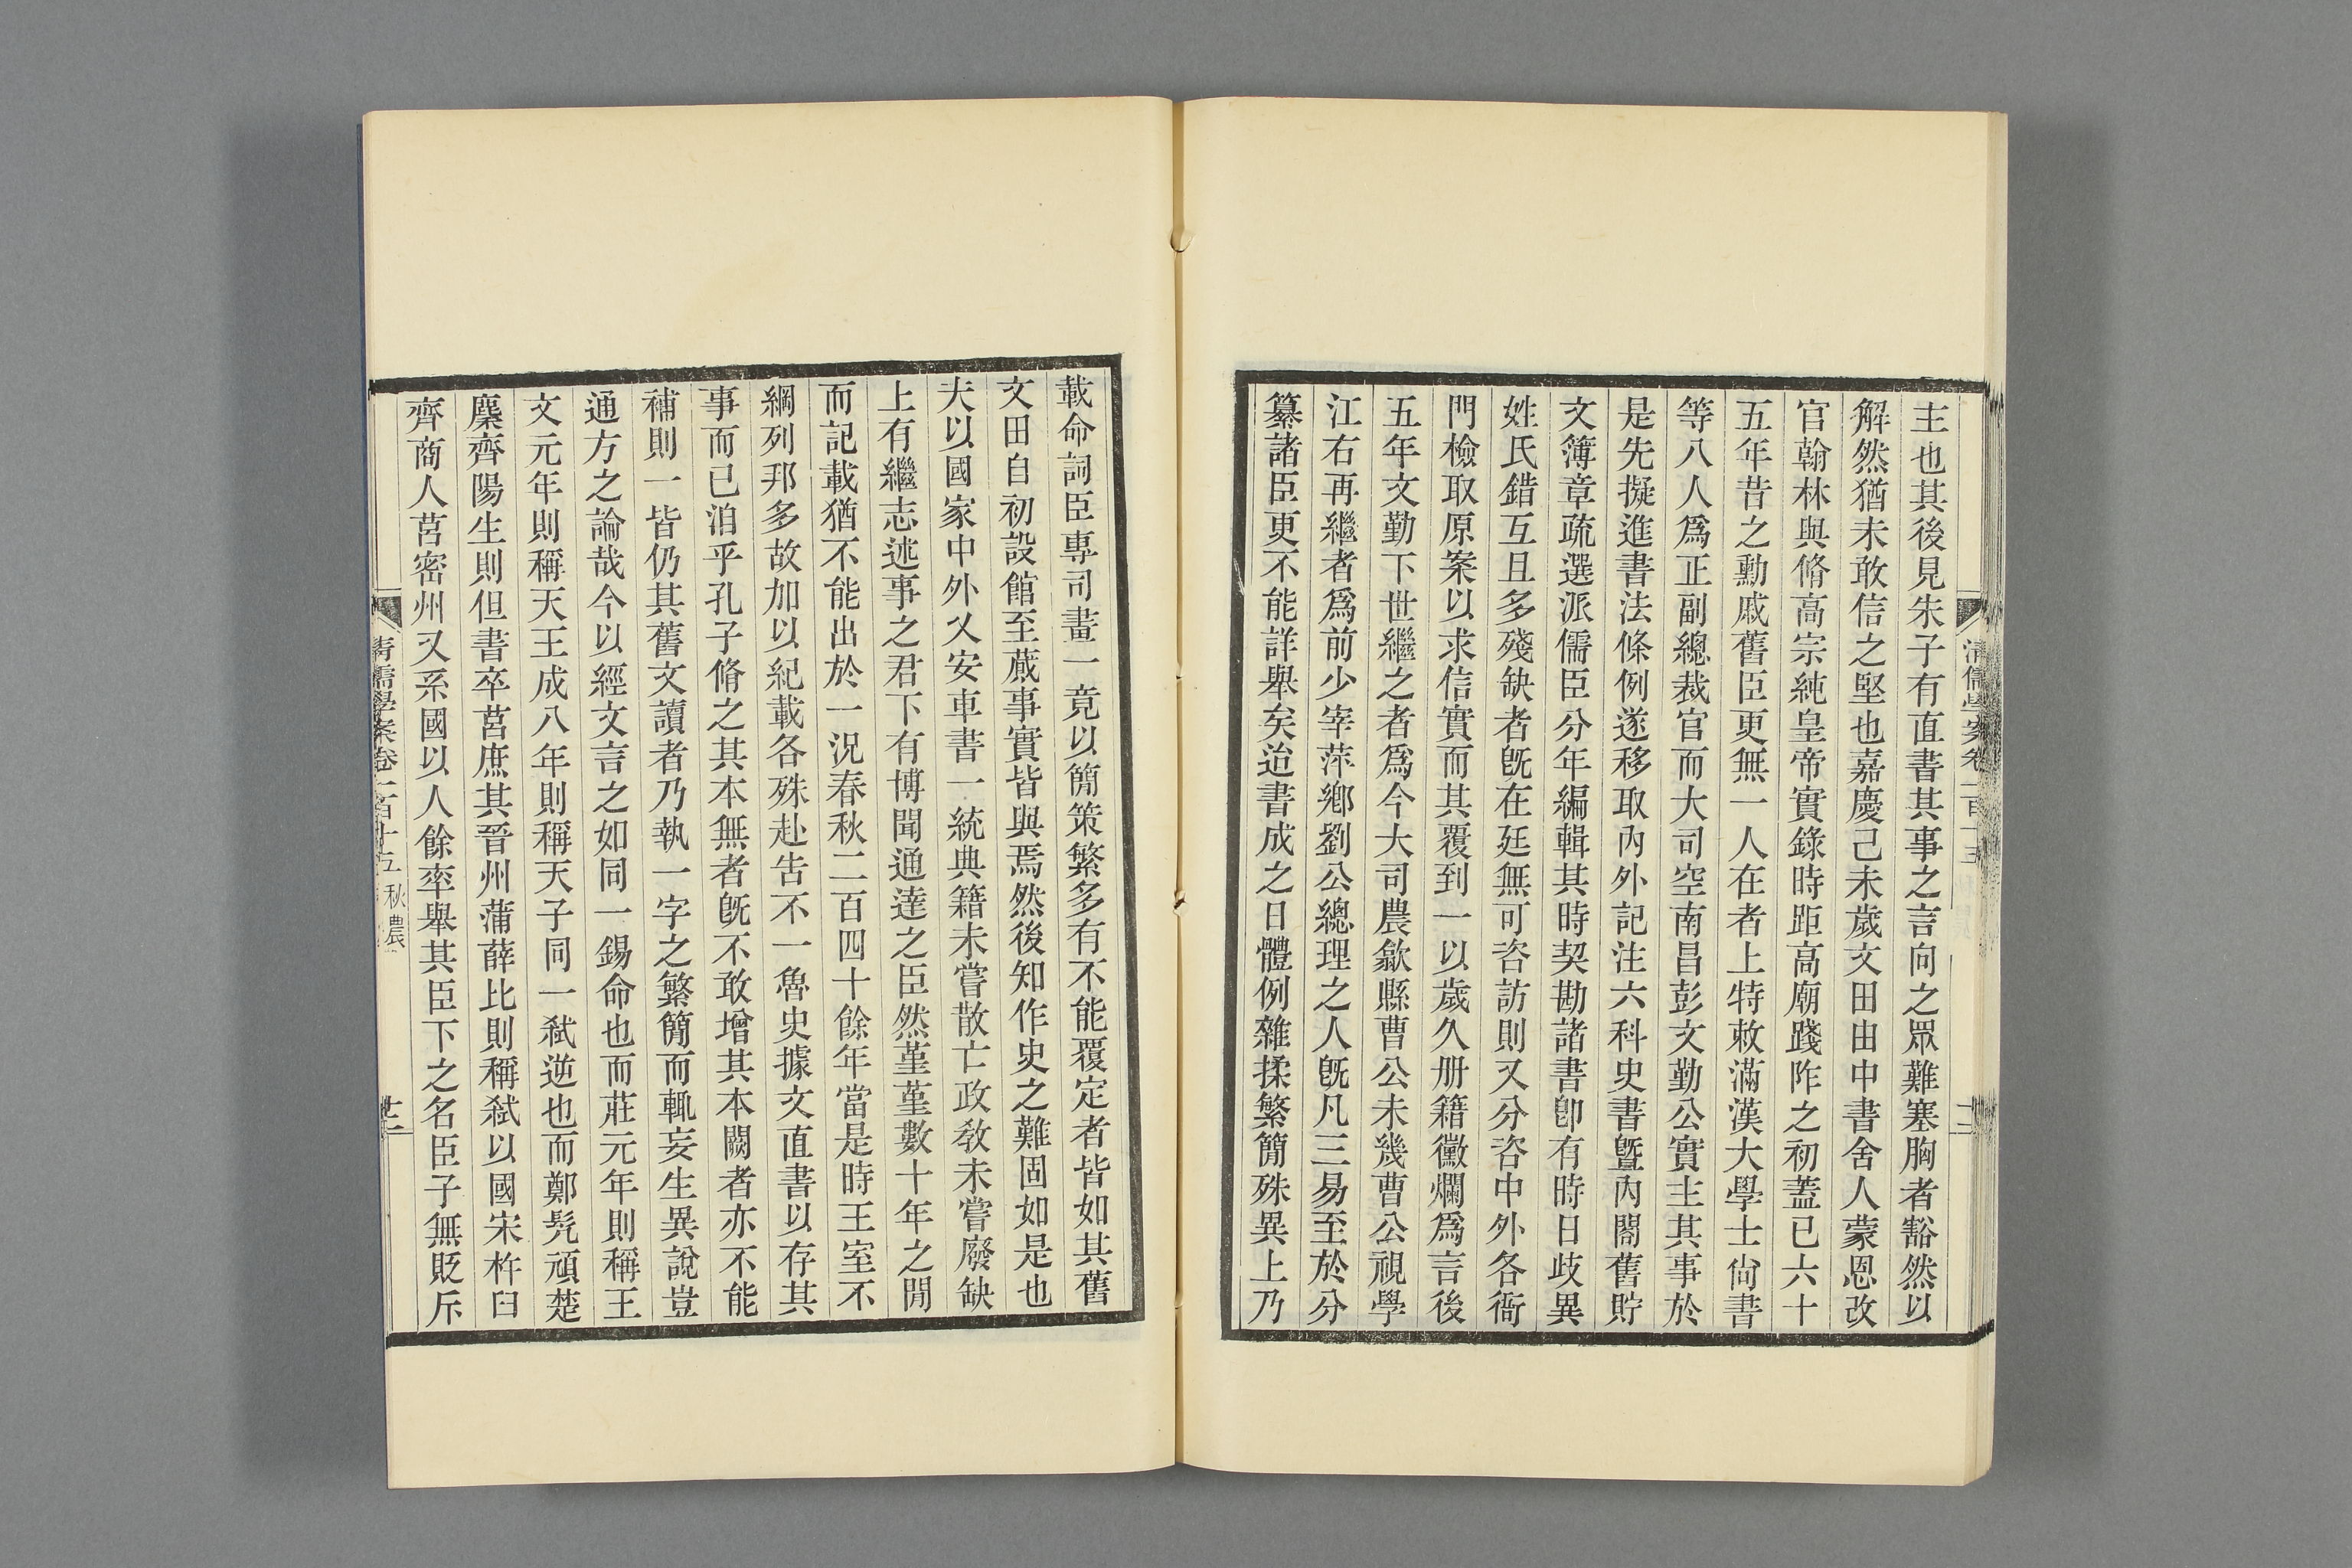 主也其後見朱子有直書其事之言向之眾難塞胸者豁然以
解然猶未敢信之堅也嘉慶己未歲文田由中書舍人蒙恩改
官翰林與脩高宗純皇帝實錄時距高廟踐阼之初蓋已六十
五年昔之勳戚舊臣更無一人在者上特敕滿漢大學士尙書
等八人爲正副總裁官而大司空南昌彭文勤公實主其事於
是先擬進書法條例遂移取內外記注六科史書曁內閣舊貯
文簿章疏選派儒臣分年編輯其時契勘諸書卽有時日歧異
姓氏錯互且多殘缺者旣在廷無可咨訪則又分咨中外各衙
門檢取原案以求信實而其覆到一以歲久册籍黴爛爲言後
五年文勤下世繼之者爲今大司農歙縣曹公未幾曹公視學
江右再繼者爲前少宰萍鄉劉公總理之人旣凡三易至於分
纂諸臣更不能詳舉矣迨書成之日體例雜揉繁簡殊異上乃
載命詞臣專司畫一竟以簡策繁多有不能覆定者皆如其舊
文田自初設館至蕆事實皆與焉然後知作史之難固如是也
夫以國家中外乂安車書一統典籍未嘗散亡政敎未嘗廢缺
上有繼志述事之君下有博聞通達之臣然堇堇數十年之閒
而記載猶不能出於一況春秋二百四十餘年當是時王室不
綱列邦多故加以紀載各殊赴告不一魯史據文直書以存其
事而已洎乎孔子脩之其本無者旣不敢增其本闕者亦不能
補則一皆仍其舊文讀者乃執一字之繁簡而輒妄生異說豈
通方之論哉今以經文言之如同一錫命也而莊元年則稱王
文元年則稱天王成八年則稱天子同一弒逆也而鄭髡頑楚
麇齊陽生則但書卒莒庶其晉州蒲薛比則稱弒以國宋杵臼
齊商人莒密州又系國以人餘率舉其臣下之名臣子無貶斥
清儒學案卷一百十五 秋農 廿二